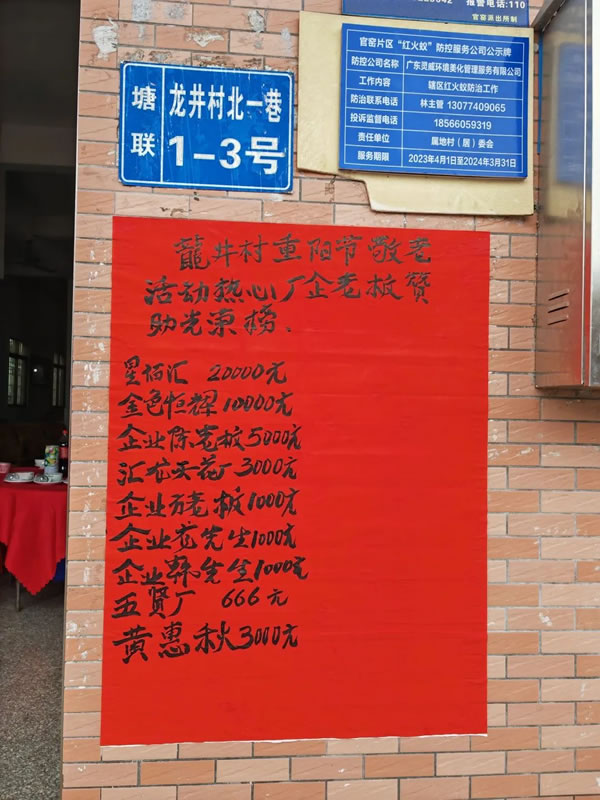 报警电话:110
官窑派出所制
塘联
龙井村北一巷
1-3号
官窑片区“红火蚁”防控服务公司公示牌
防控公司名称 广东灵威环境美化管理服务有限公司
工作内容 辖区红火蚁防治工作
防治联系电话 林主管 13077409065
投诉监督电话 18566059319
责任单位 属地村（居）委会
服务期限 2023年4月1日至2024年3月31日
龍井村重阳节敬老
活动热心厂企老板赞
助光荣榜.
星佰汇 20000元
金色恒辉10000元
企业陈老板5000元
汇龙天花厂3000元
企业方老板1000元
企业 先生1000元
企业韩先生1000元
五贤厂 666元
黄惠秋3000元